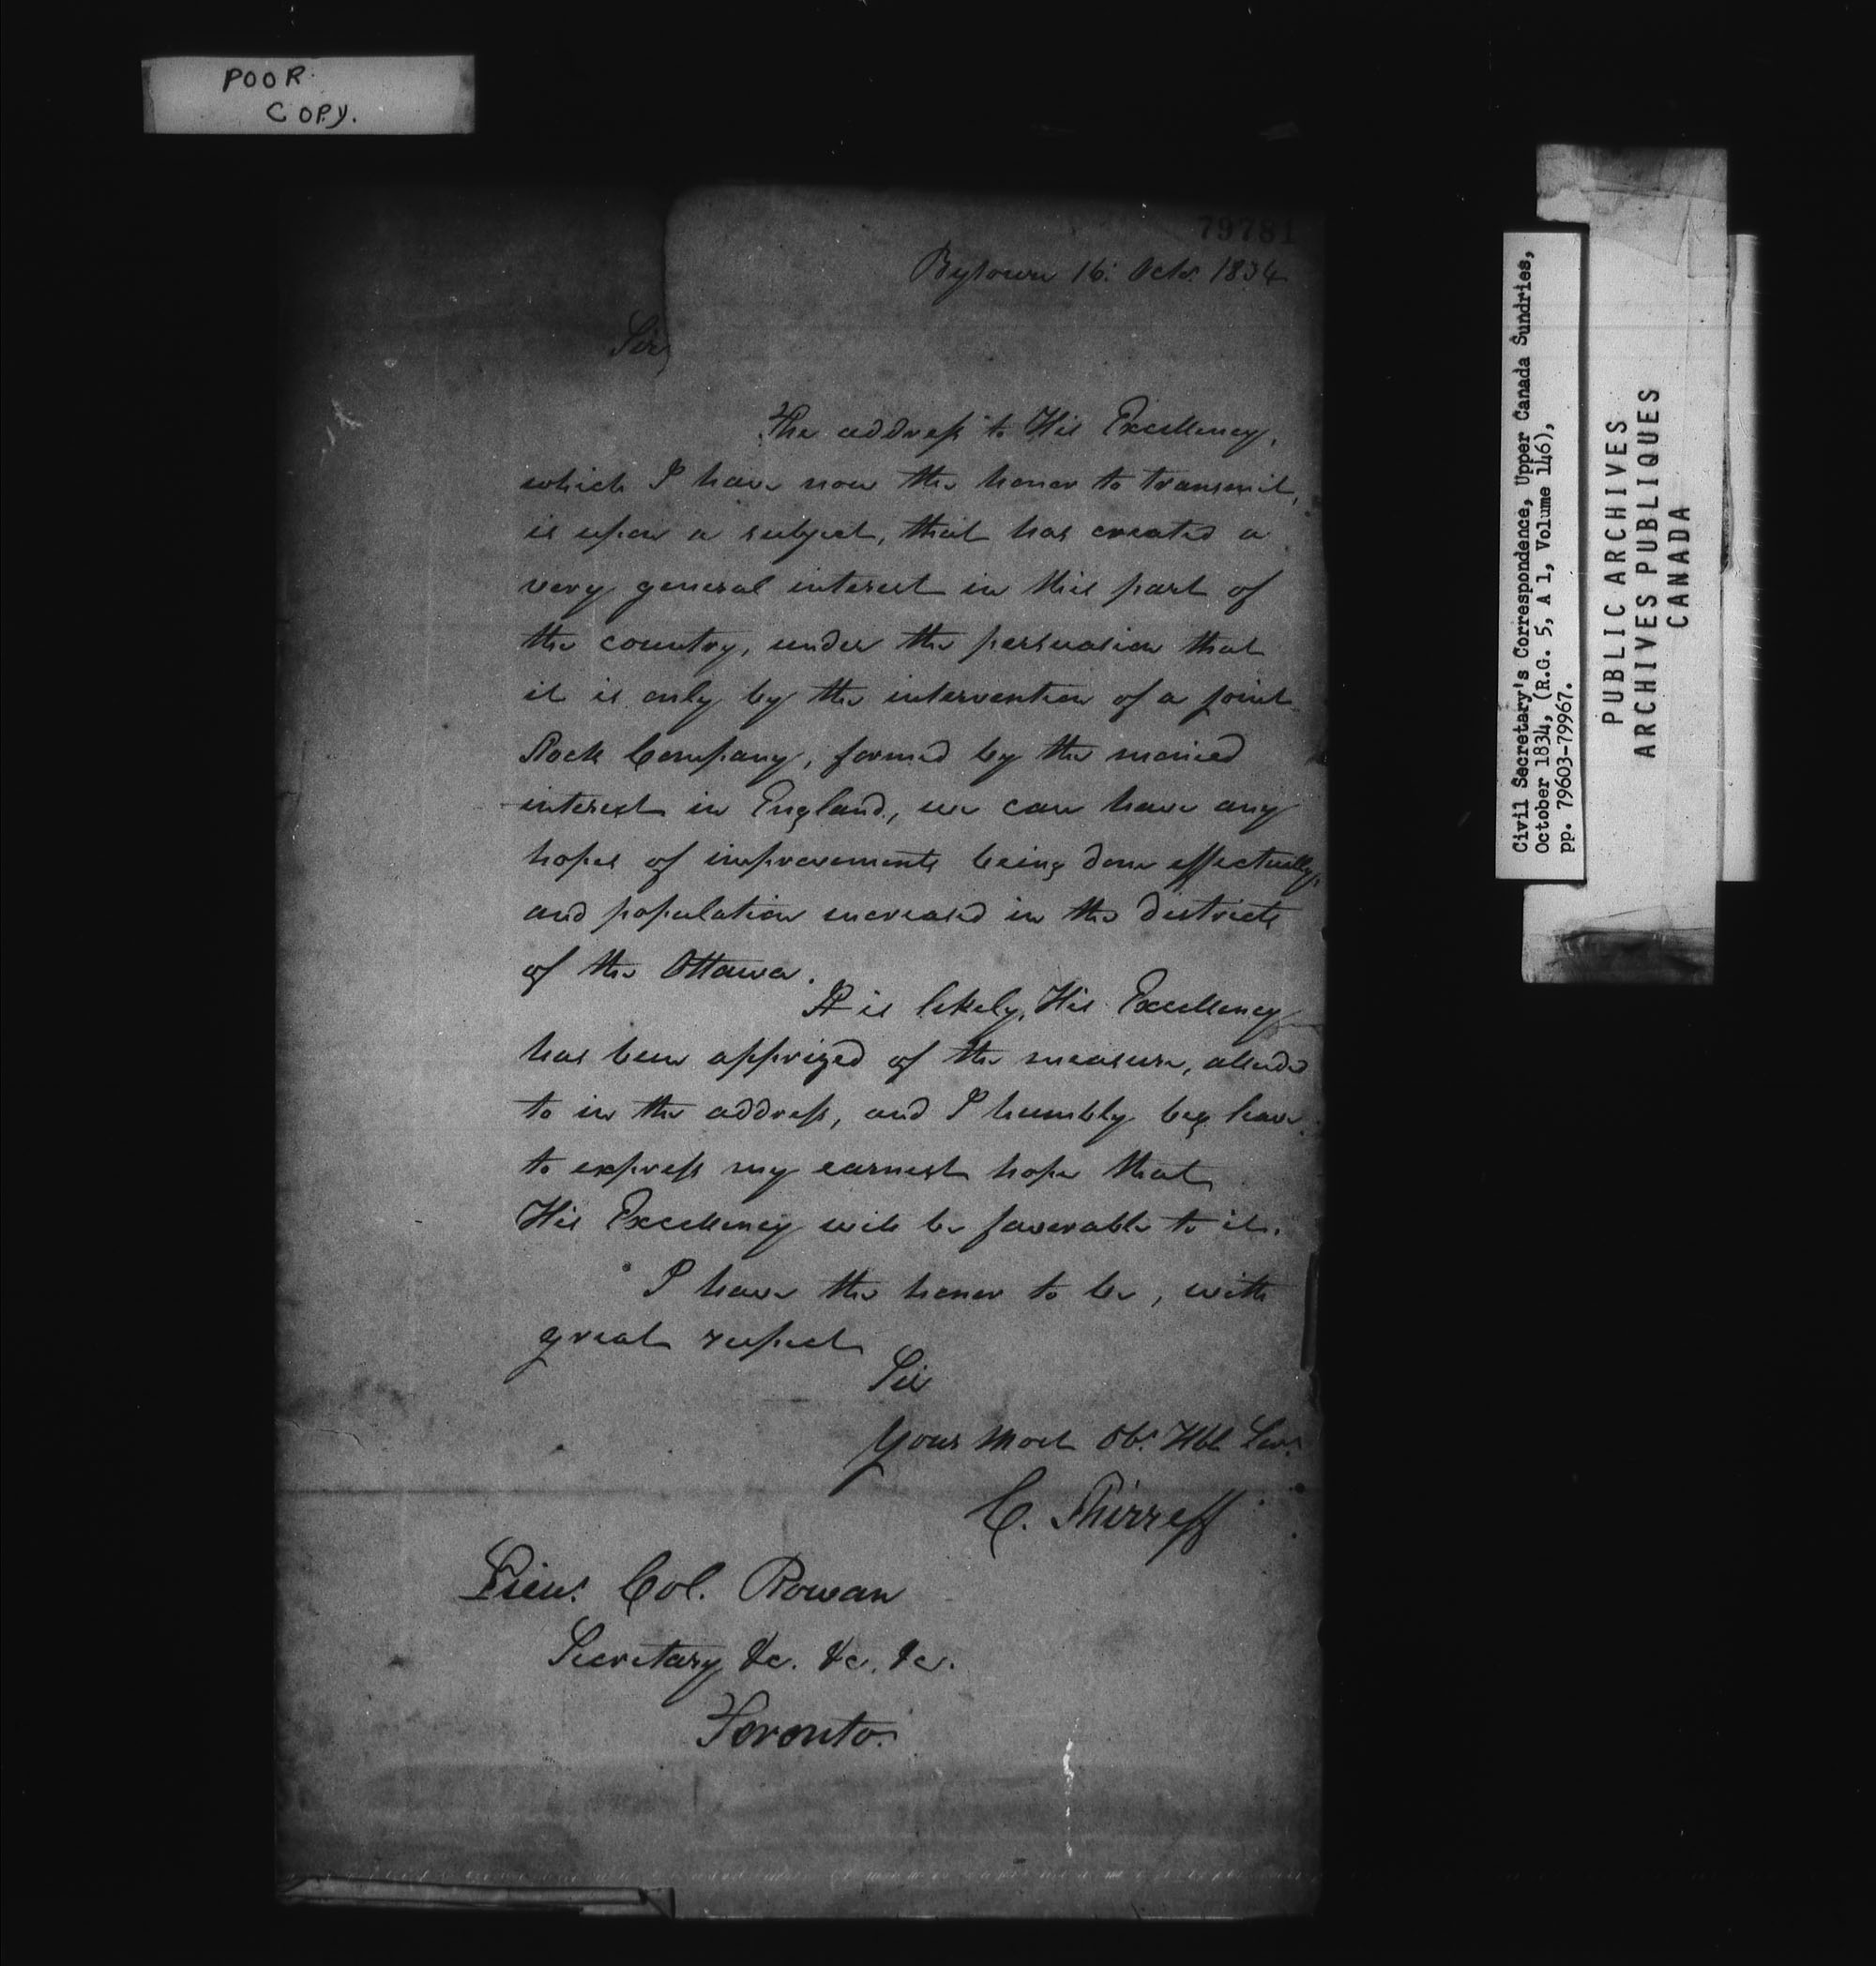 POOR
COPY.
79781
Bytown 16: Octr. 1834
Sir
The address to His Excellency,
which I have now the honor to transmit,
is upon a subject, that has created a
very general interest in this part of
the country, under the persuasion that
it is only by the intervention of a joint
Stock Company, formed by the monied
interest in England, we can have any
hopes of improvements being done effectually,
and population increased in the districts
of the Ottawa.
It is likely, His Excellency
has been apprized of the measure, alluded
to in the address, and I humbly beg leave
to express my earnest hope that
His Excellency will be favorable to it.
I have the honor to be, with
great respect
Sir
Your most Obt. Hbl Servt
C. Shirreff
Lieut. Col. Rowan
Secretary &c. &c. &c.
Toronto.
Civil Secretary's Correspondence, Upper Canada Sundries,
October 1834, (R.G. 5, A 1, Volume 146),
pp. 79603-79967.
PUBLIC ARCHIVES
ARCHIVES PUBLIQUES
CANADA